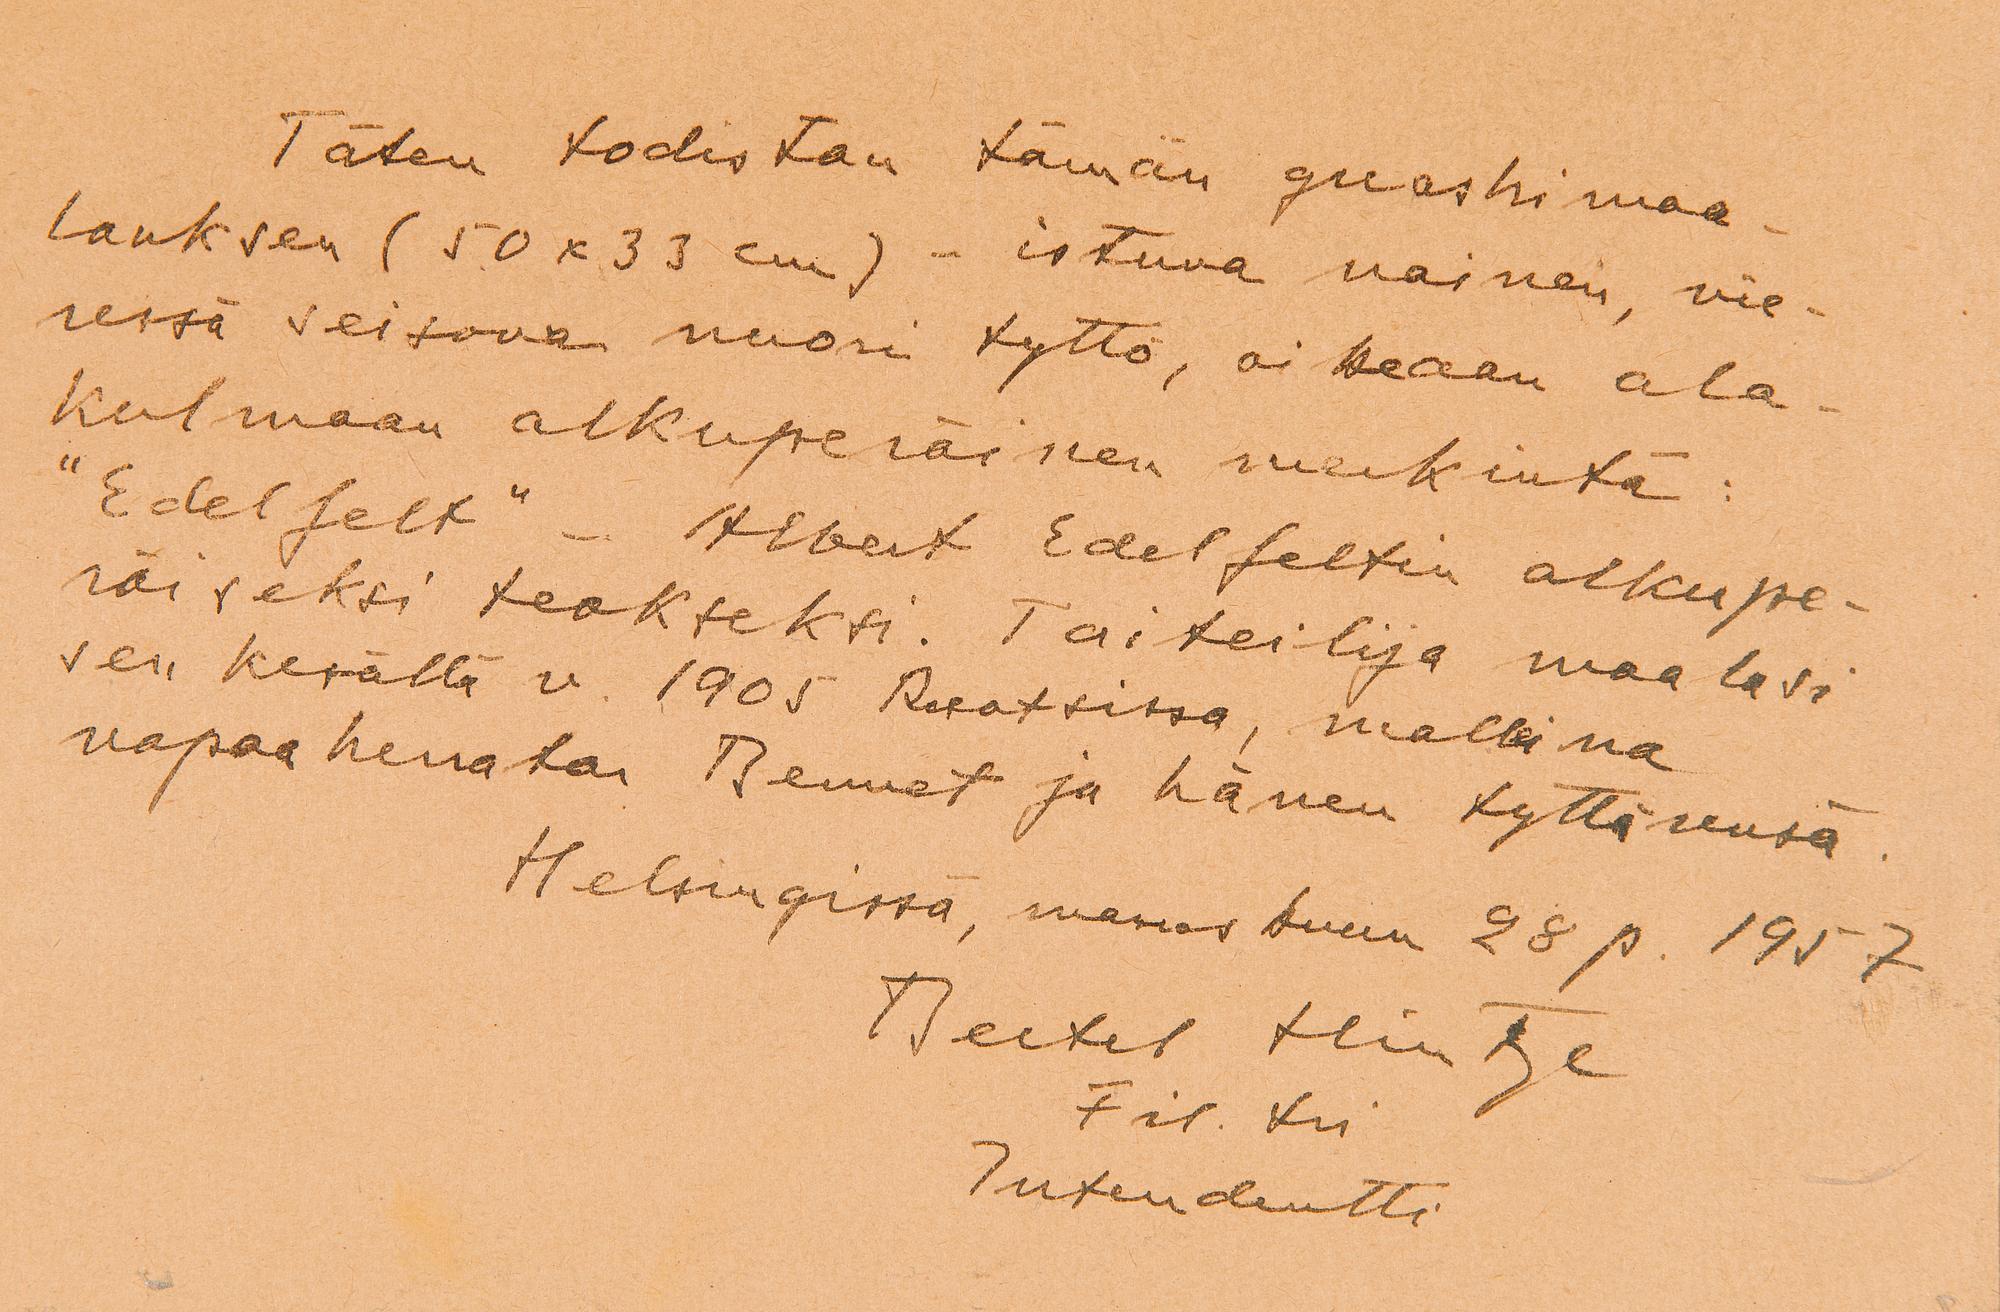 Täten todistan tämän guashimaa-
lauksen (50 x 33 cm) - istuva nainen, vie-
ressä seisova nuori tyttö, oikeaan ala-
kulmaan alkuperäinen merkintä:
"Edelfelt" - Albert Edelfeltin alkupe-
räiseksi teokseksi. Taiteilija maalasi
sen kesällä v. 1905 Ruotsissa, mallina
vapaaherratar Bennet ja hänen tyttärensä.
Helsingissä, marraskuun 28 p. 1957
Bertel Hintze
Fil. tri
Intendentti